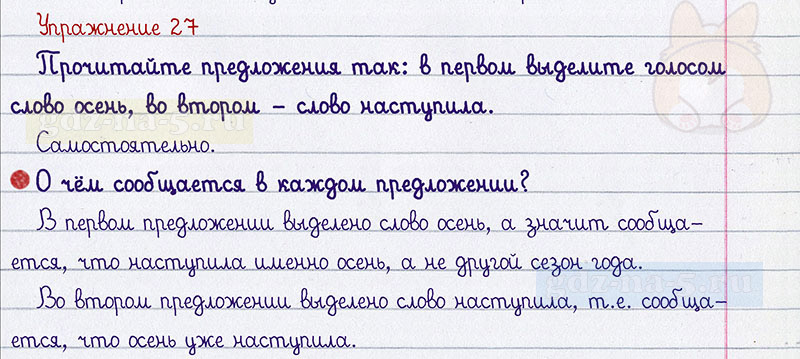 Упражнение 27
Прочитайте предложения так: в первом выделите голосом
слово осень, во втором – слово наступила.
gdz-na-5.ru
Самостоятельно.
О чём сообщается в каждом предложении?
В первом предложении выделено слово осень, а значит сообща–
ется, что наступила именно осень, а не другой сезон года.
gdz-na-5.ru
Во втором предложении выделено слово наступила, т.е. сообща–
ется, что осень уже наступила.